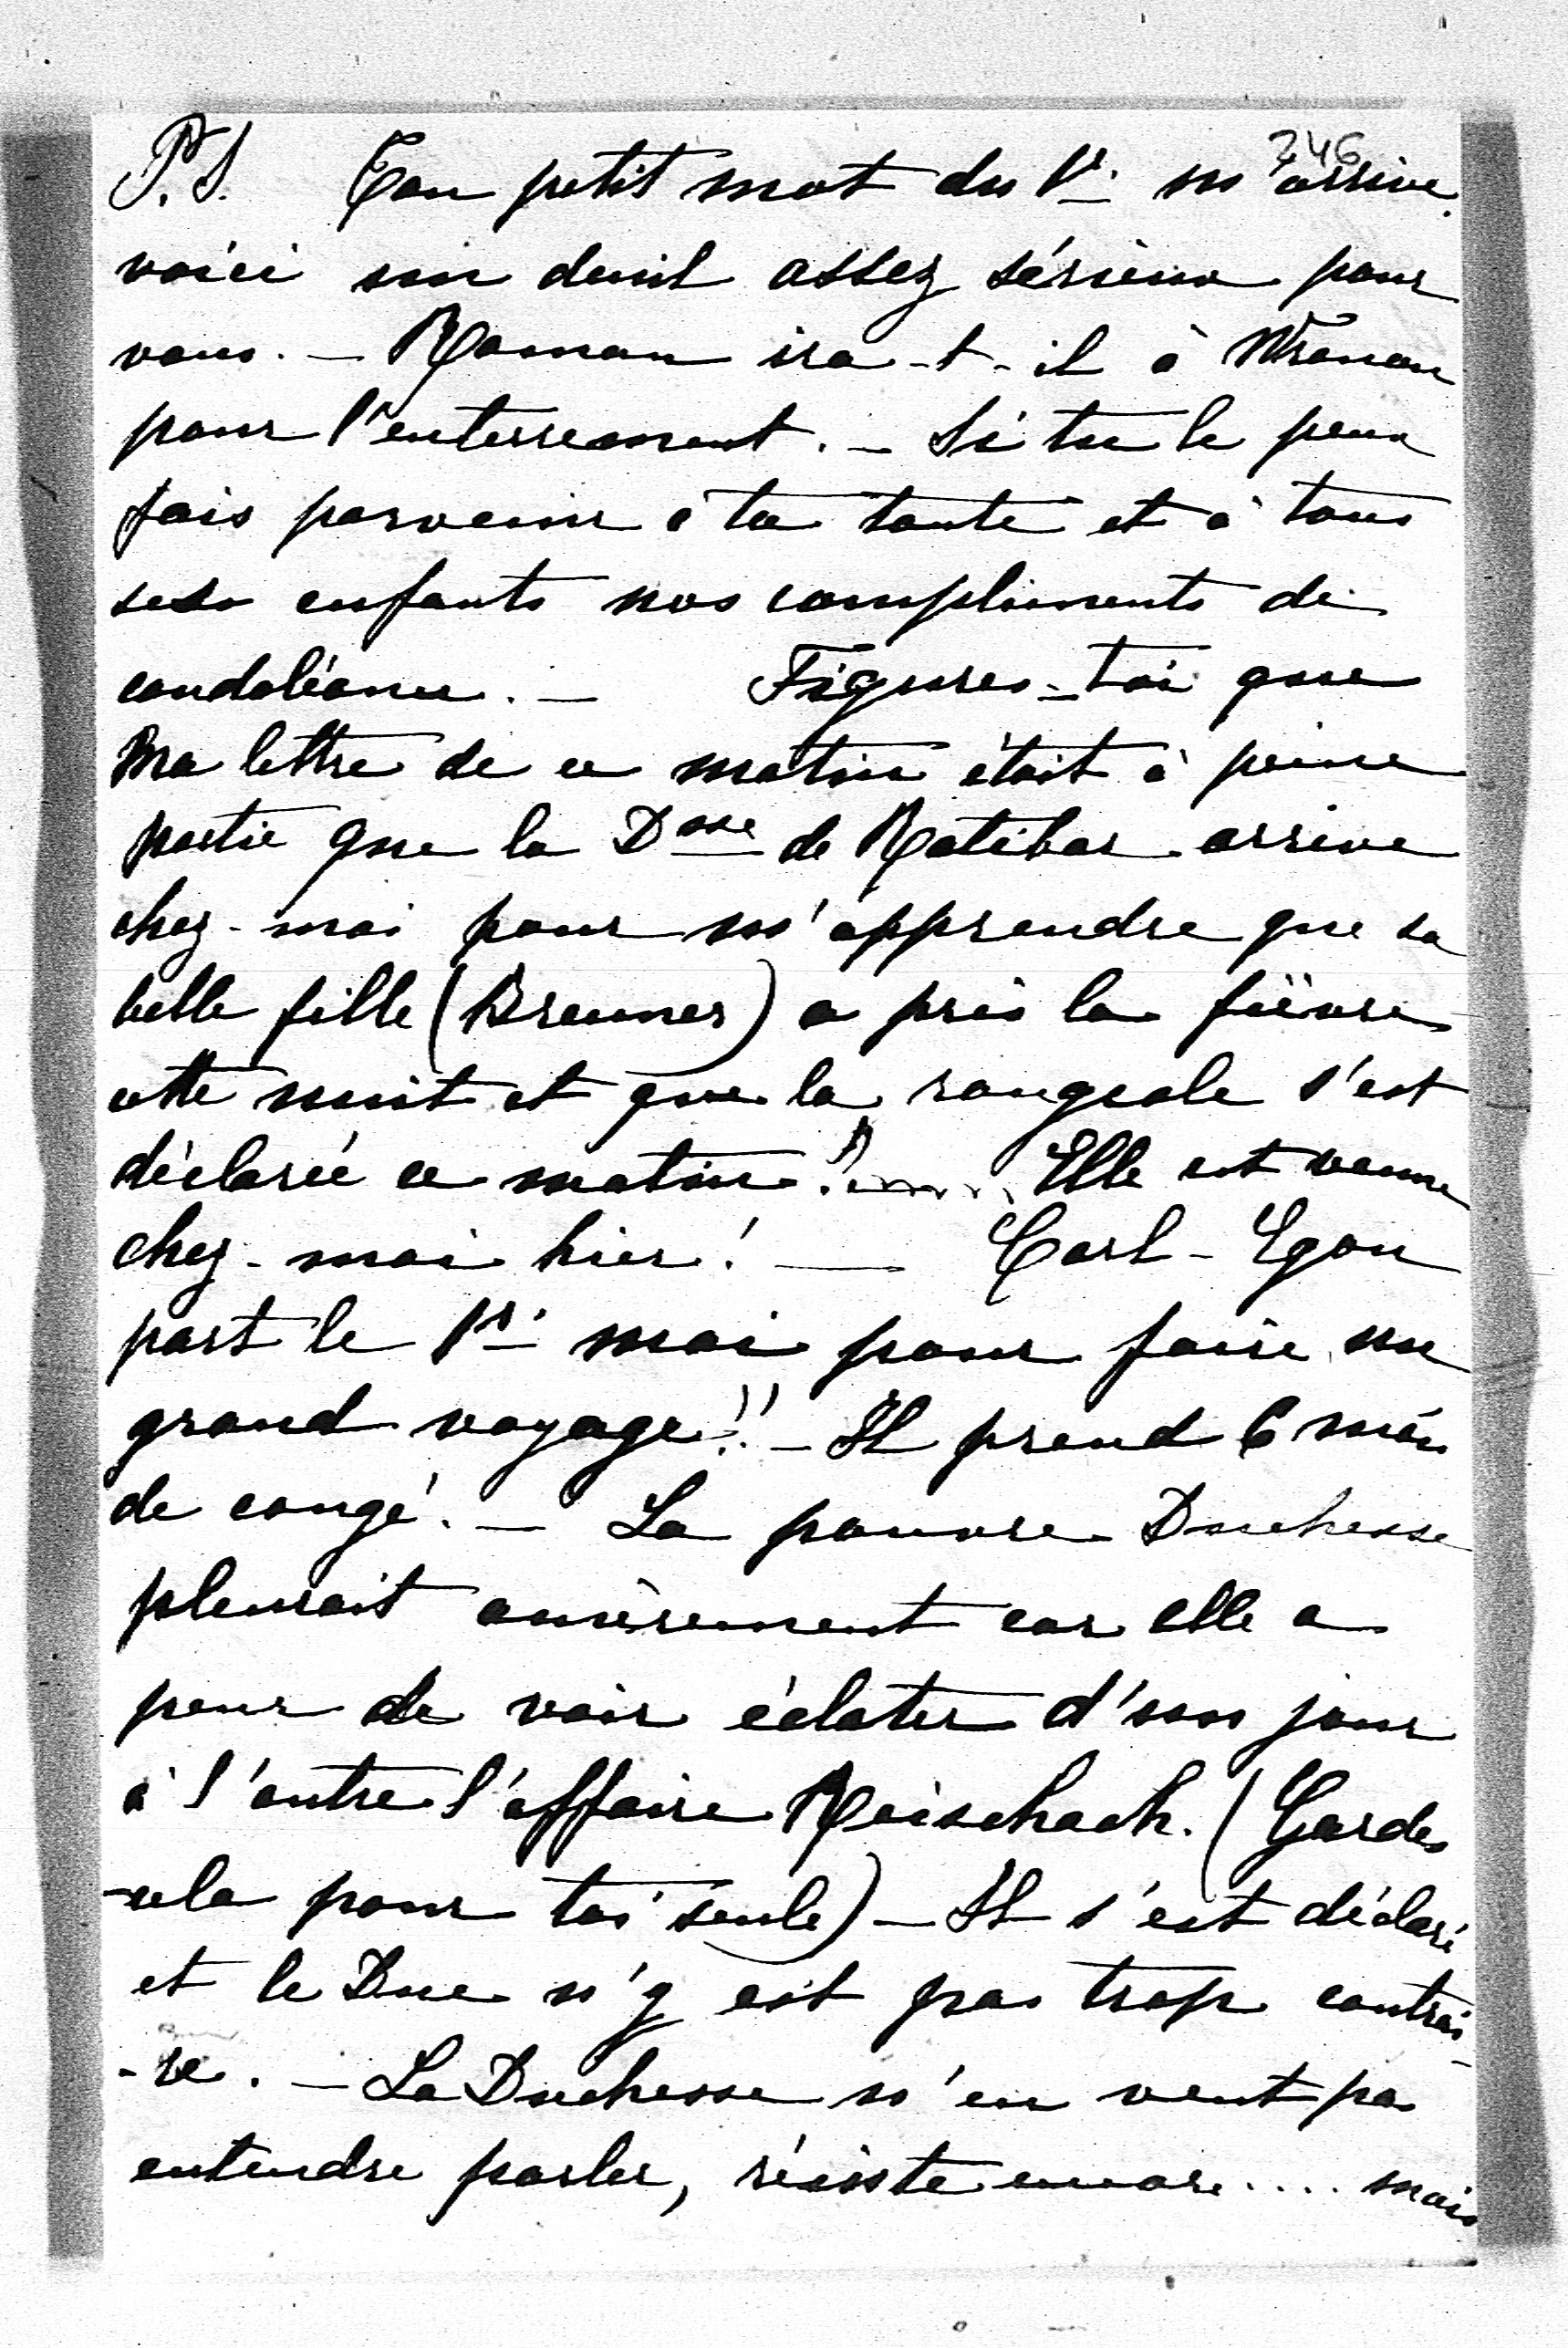 246
P.S. Ton petit mot du 1r. m'arrive.
voici un deuil assez sérieux pour
vous. — Roman ira-t-il à Wranau
pour l'enterrement. — Si tu le peux
fais parvenir à ta tante et à tous
ses enfants nos compliments de
condoléance. — Figures-toi que
ma lettre de ce matin était à peine
partie que la Dsse de Ratibor arrive
chez-moi pour m'apprendre que sa
belle fille (Breuner) a pris la fièvre
cette nuit et que la rougeole s'est
déclarée ce matin! .... Elle est venue
chez-moi hier! — Carl-Egon
part le 1r. mai pour faire un
grand voyage!! — Il prend 6 mois
de congé. — La pauvre Duchesse
pleurait amèrement car elle a
peur de voir éclater d'un jour
à l'autre l'affaire Reischach. (Gardes
-cela pour toi seule) — Il s'est déclaré
et le Duc n'y est pas trop contrai-
-re. — La Duchesse n'en veut pas
entendre parler, résiste encore .... mais